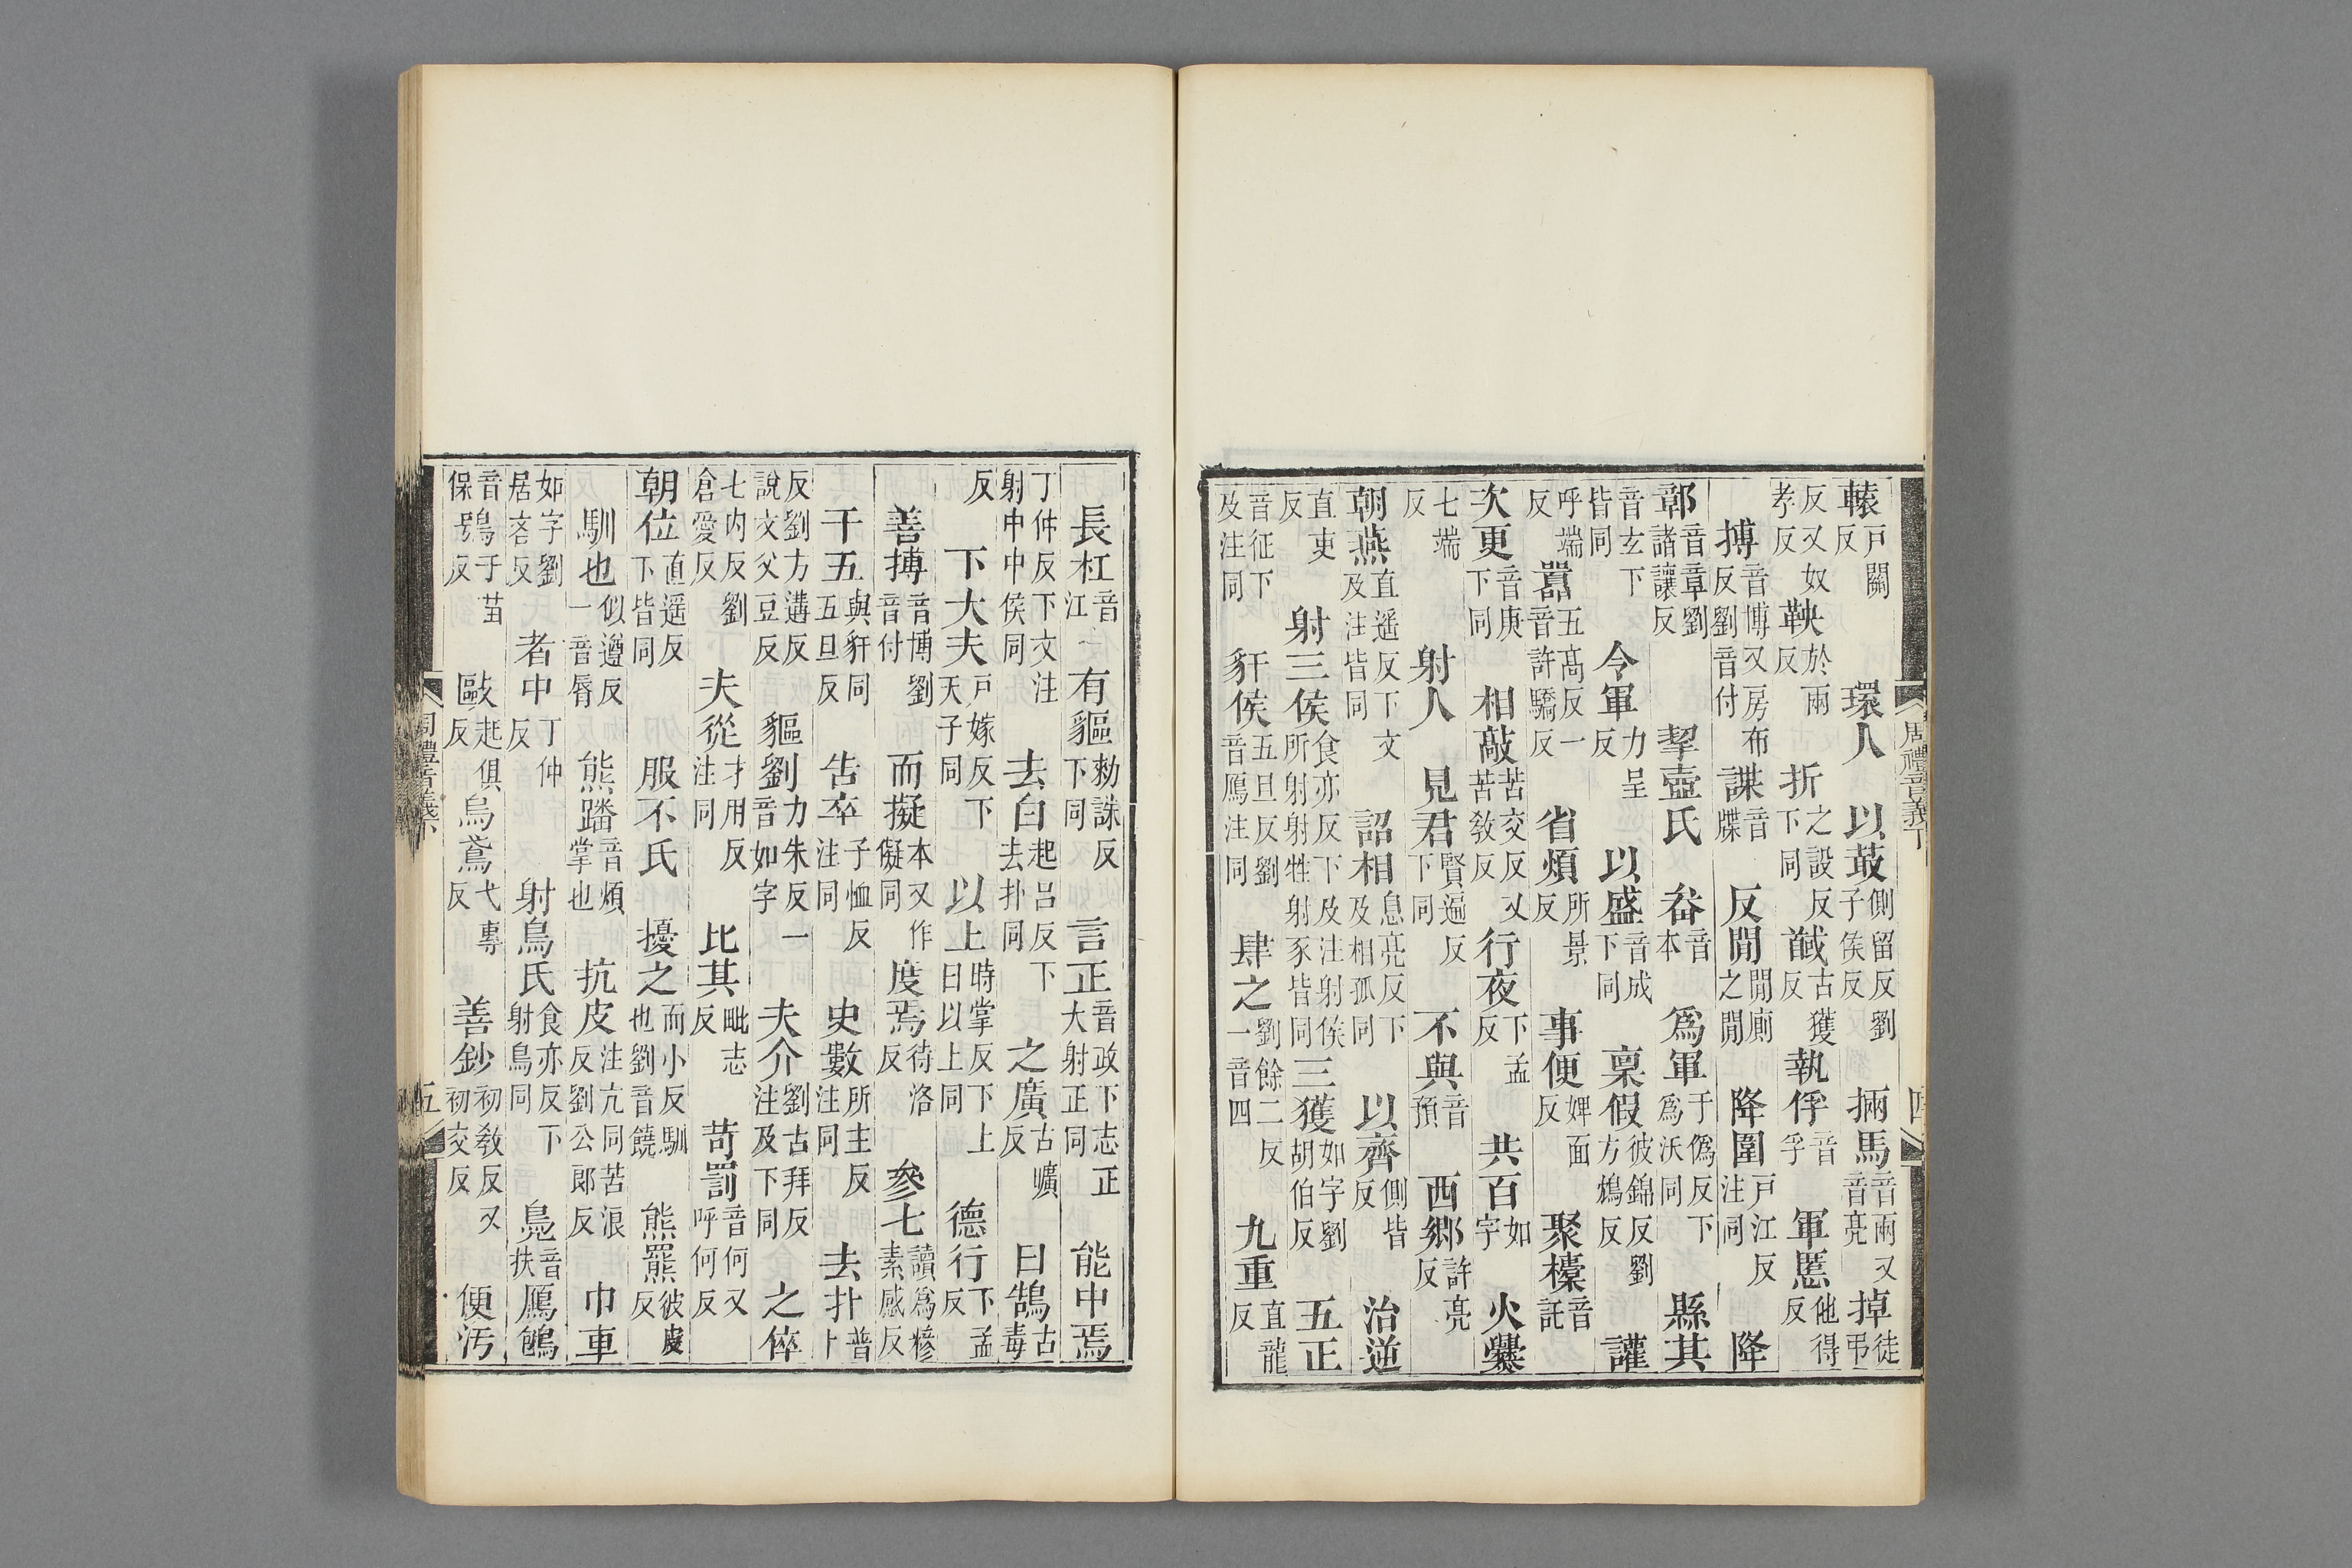 轅戶關反　環人　以菆側留反劉子侯反　掚馬音兩又音亮　掉徒弔
反又奴孝反　鞅於兩反　折之設反下同　馘古獲反　執俘音孚　軍慝他得反
搏音博又房布反劉音付　諜音牒　反閒閒廁之閒　降圍戶江反注同　降
鄣音章劉諸讓反　挈壺氏　畚音本　爲軍于僞反下爲沃同　縣其
音玄下皆同　令軍力呈反　以盛音成下同　稟假彼錦反劉方鴆反　讙
呼端反　嚻五髙反一音許驕反　省煩所景反　事便婢面反　聚㯓音託
次更音庚下同　相敲苦交反又苦敎反　行夜下孟反　共百如字　火爨
七端反　射人　見君賢遍反下同　不與音預　西鄉許亮反
朝燕直遥反下文及注皆同　詔相息亮反下及相孤同　以齊側皆反　治逆
直吏反　射三侯食亦反下及注射侯所射射牲射豕皆同　三獲如字劉胡伯反　五正
音征下及注同　豻侯五旦反劉音鴈注同　肆之劉餘二反一音四　九重直龍反
周禮音義下　四
長杠音江　有貙勑誅反下同　言正音政下志正大射正同　能中焉
丁仲反下文注射中中侯同　去白起呂反下去扑同　之廣古曠反　曰鵠古毒
反　下大夫戶嫁反下天子同　以上時掌反下上曰以上同　德行下孟反
善搏音博劉音付　而擬本又作儗同　度焉待洛反　參七讀爲糝素感反
干五與豻同五旦反　告卒子恤反注同　史數所主反注同　去扑普卜
反劉方遘反說文父豆反　貙劉力朱反一音如字　夫介劉古拜反注及下同　之倅
七内反劉倉愛反　夫從才用反注同　比其毗志反　苛罰音何又呼何反
朝位直遥反下皆同　服不氏　擾之而小反馴也劉音饒　熊羆彼皮反
馴也似遵反一音脣　熊蹯音煩掌也　抗皮注亢同苦浪反劉公郎反　巾車
如字劉居反　者中丁仲反　射鳥氏食亦反下射鳥同　鳧音扶　鴈鴇
音保鴞于苗反　毆起俱反　烏鳶弋專反　善鈔初敎反又初交反　便汚
周禮音義下　五